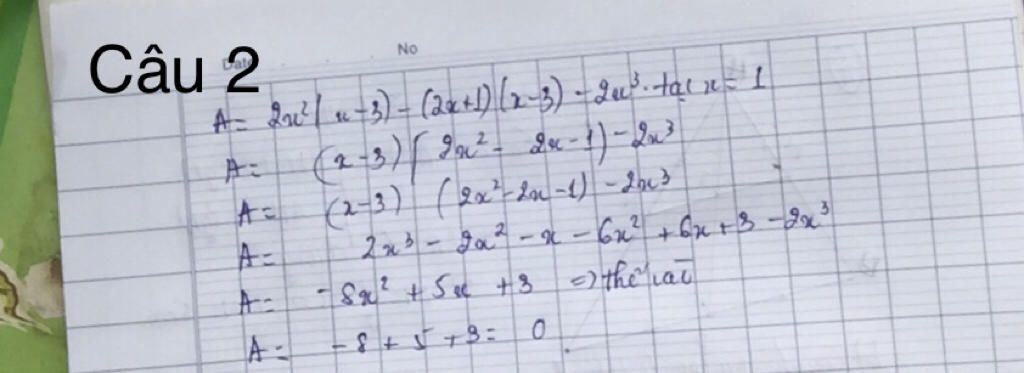 Câu 2
Date No
A = 2x²(x-3) - (2x+1)(x-3) - 2x³. tại x = 1
A = (x-3)(2x² - 2x-1) - 2x³
A = (x-3) (2x²-2x-1) - 2x³
A = 2x³ - 2x² - x - 6x² + 6x + 3 - 2x³
A = -8x² + 5x + 3 => thế vào
A = -8 + 5 + 3 = 0